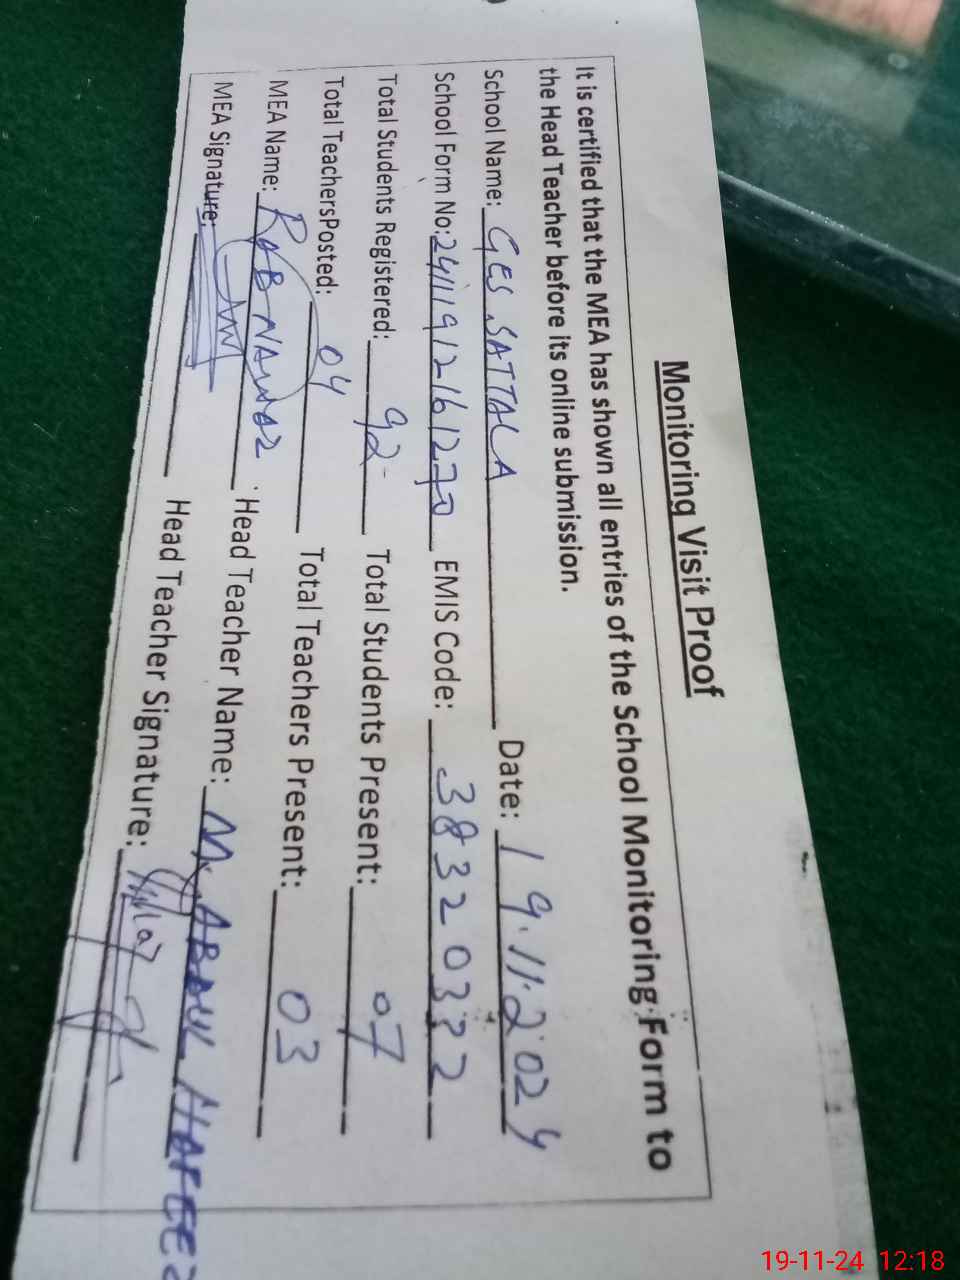 Monitoring Visit Proof
It is certified that the MEA has shown all entries of the School Monitoring Form to
the Head Teacher before its online submission.
School Name: GES SATTALA Date: 19.11.2024
School Form No: 24111912161270 EMIS Code: 38320332
Total Students Registered: 92 Total Students Present: 07
Total TeachersPosted: 04 Total Teachers Present: 03
MEA Name: RAB NAWAZ Head Teacher Name: M. ABDUL HAFEEZ
MEA Signature: Head Teacher Signature:
19-11-24 12:18